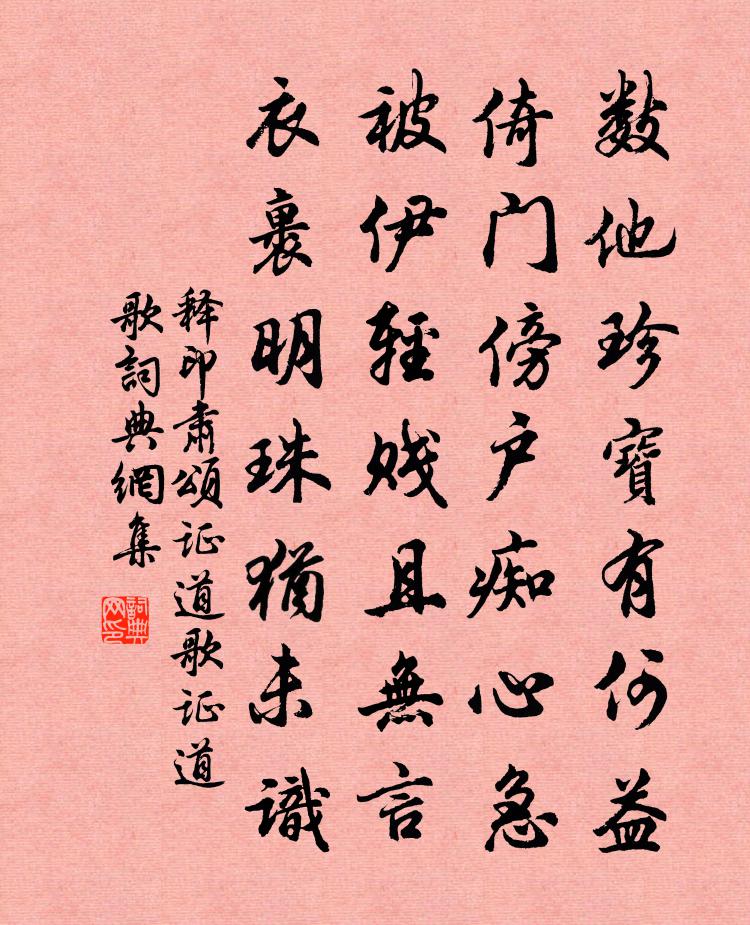 数他珍寶有何益
倚门傍户痴心急
被伊輕贱且無言
衣裹明珠猶未識
释印肃颂证道歌证道
歌詞典網集
詞典网印